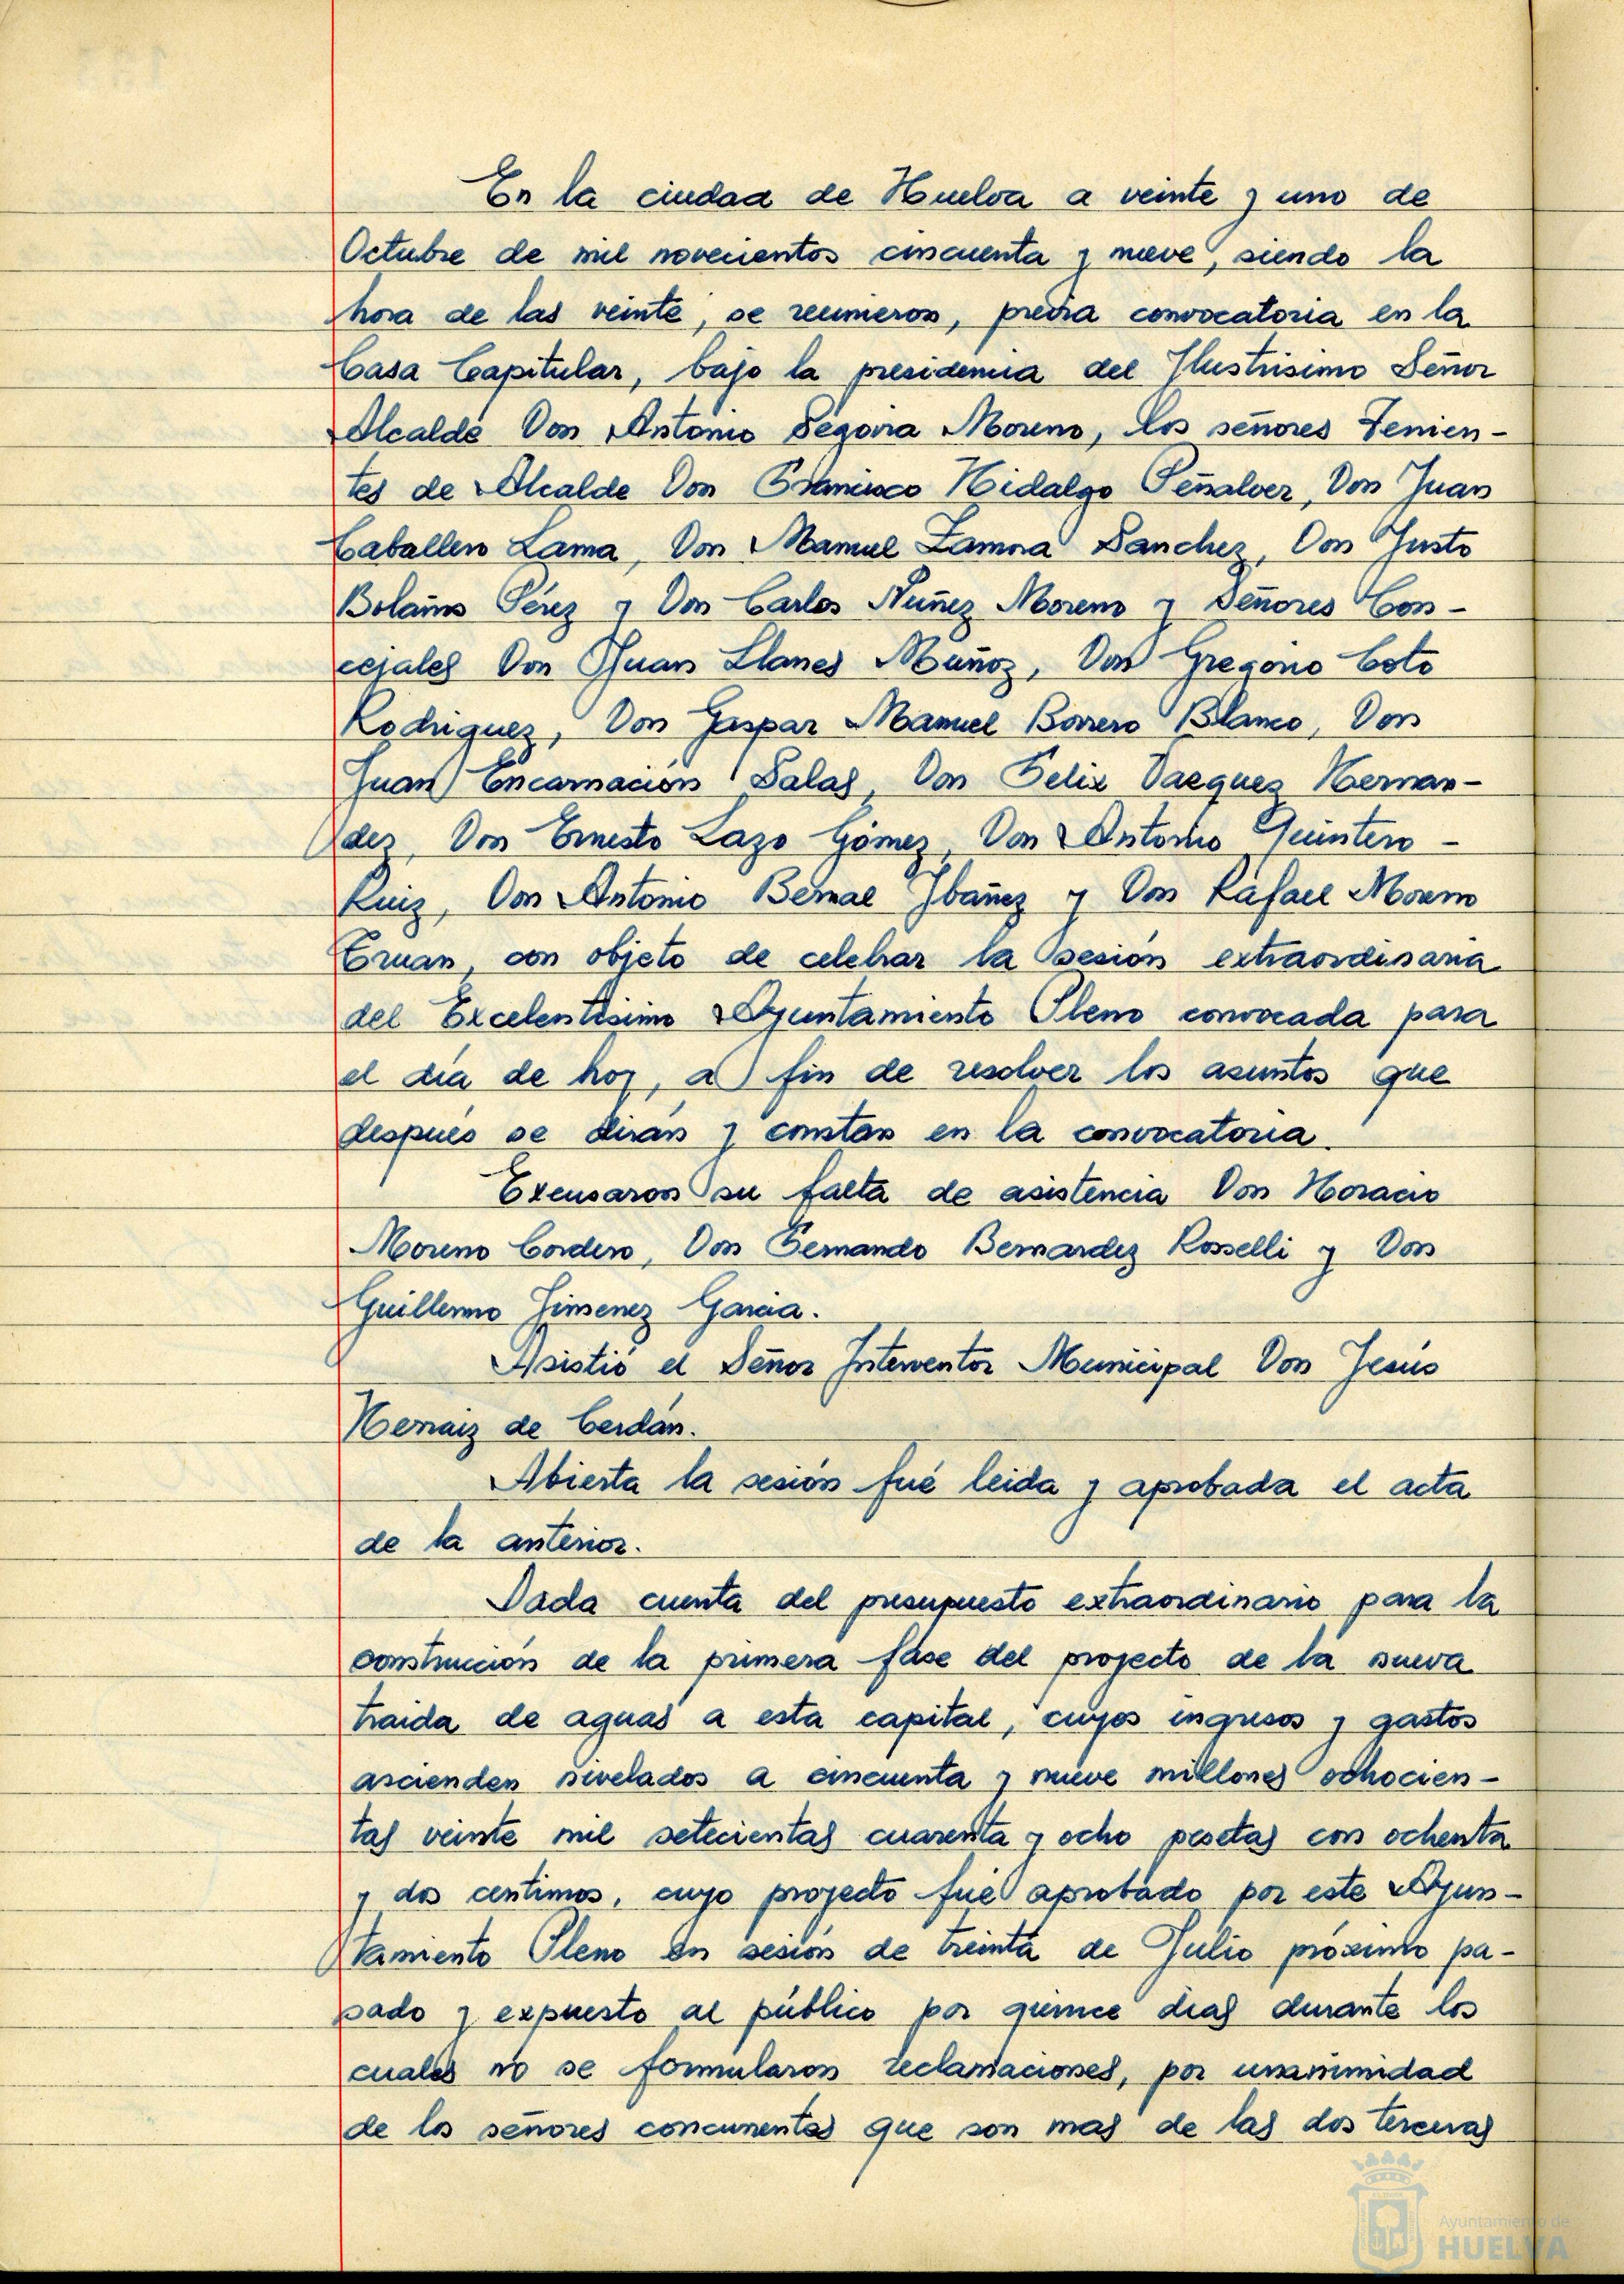 En la ciudad de Huelva a veinte y uno de
Octubre de mil novecientos cincuenta y nueve, siendo la
hora de las veinte, se reunieron, previa convocatoria en la
Casa Capitular, bajo la presidencia del Ilustrisimo Señor
Alcalde Don Antonio Segovia Moreno, los señores Tenien-
tes de Alcalde Don Francisco Hidalgo Peñalver, Don Juan
Caballero Lama, Don Manuel Zamora Sanchez, Don Justo
Bolaños Pérez y Don Carlos Nuñez Moreno y Señores Con-
cejales Don Juan Llanes Muñoz, Don Gregorio Coto
Rodriguez, Don Gaspar Manuel Borrero Blanco, Don
Juan Encarnación Salas, Don Felix Vazquez Hernan-
dez, Don Ernesto Lazo Gómez, Don Antonio Quintero
Ruiz, Don Antonio Bernal Ibañez y Don Rafael Moreno
Eruan, con objeto de celebrar la sesión extraordinaria
del Excelentisimo Ayuntamiento Pleno convocada para
el día de hoy, a fin de resolver los asuntos que
después se dirán y constan en la convocatoria.
Excusaron su falta de asistencia Don Horacio
Moreno Cordero, Don Fernando Bernardez Rosselli y Don
Guillermo Jimenez Garcia.
Asistió el Señor Interventor Municipal Don Jesús
Hernaiz de Cerdán.
Abierta la sesión fué leida y aprobada el acta
de la anterior.
Dada cuenta del presupuesto extraordinario para la
construcción de la primera fase del proyecto de la nueva
traida de aguas a esta capital, cuyos ingresos y gastos
ascienden nivelados a cincuenta y nueve millones ochocien-
tas veinte mil setecientas cuarenta y ocho pesetas con ochenta
y dos centimos, cuyo proyecto fué aprobado por este Ayun-
tamiento Pleno en sesión de treinta de Julio próximo pa-
sado y expuesto al público por quince dias durante los
cuales no se formularon reclamaciones, por unanimidad
de los señores concurrentes que son mas de las dos terceras
Ayuntamiento de
HUELVA